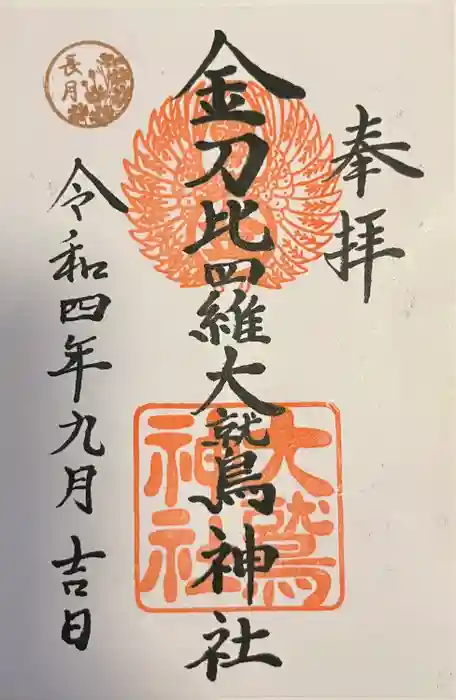 奉拝
金刀比羅大鷲神社
大鷲
神社
長月
令和四年九月吉日